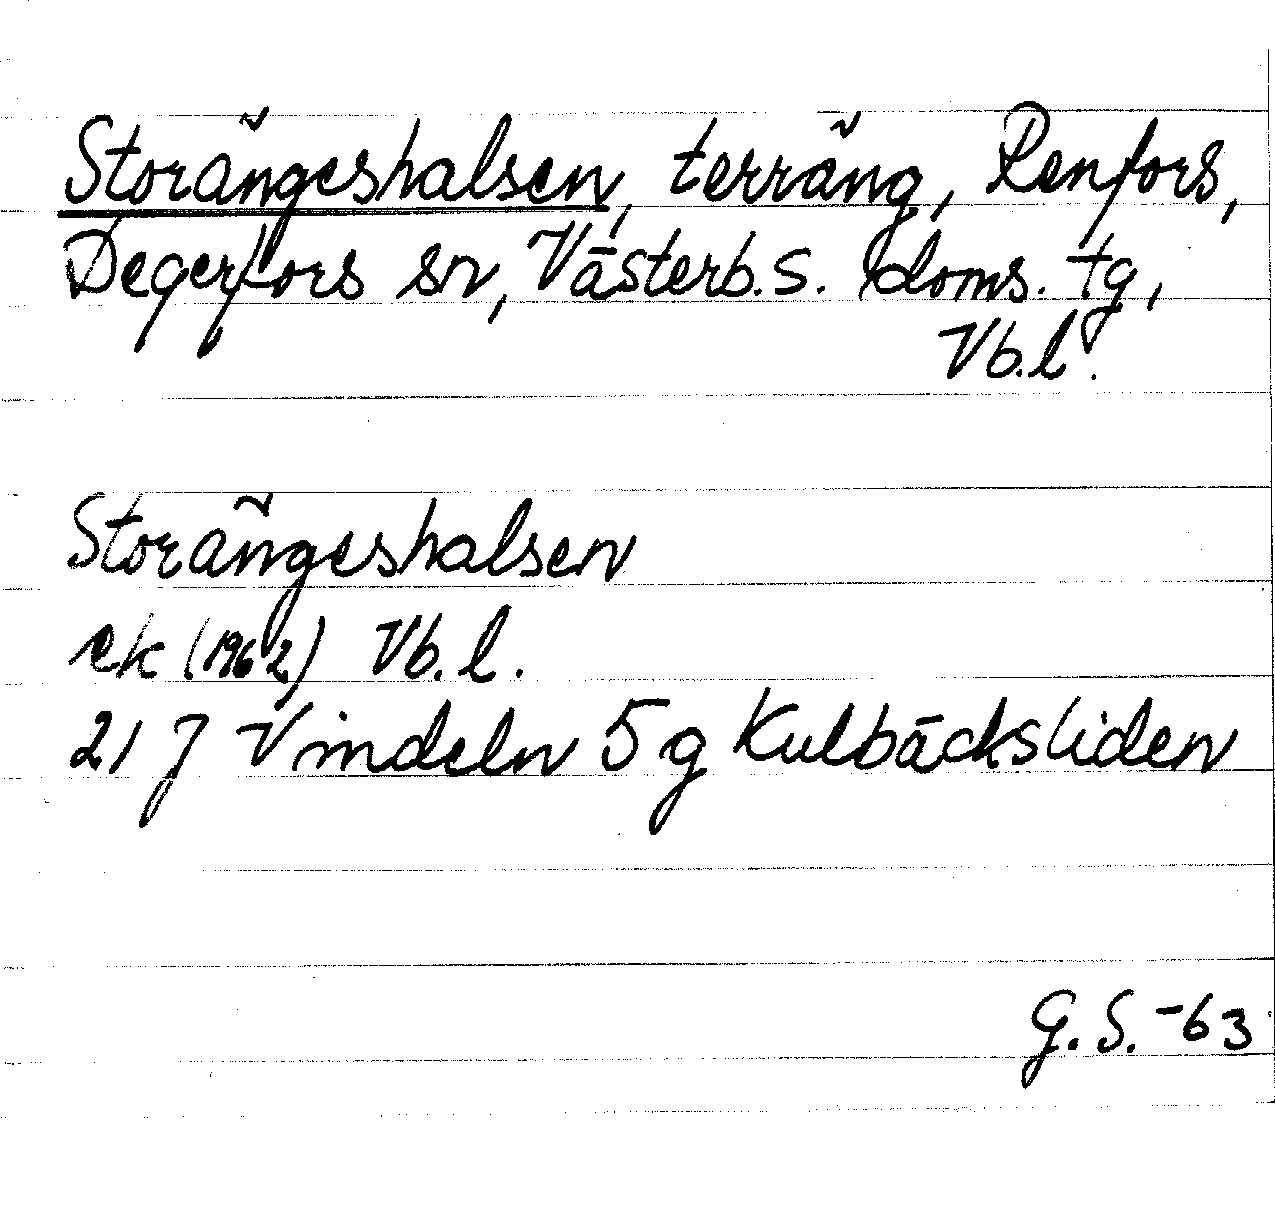 Storängeshalsen, terräng, Renfors,
Degerfors sn, Västerb. s. doms. tg,
Vb.l.
Storängeshalsen
ek (1962) Vb. l.
21 J Vindeln 5 g Kulbäcksliden
G. S. -63